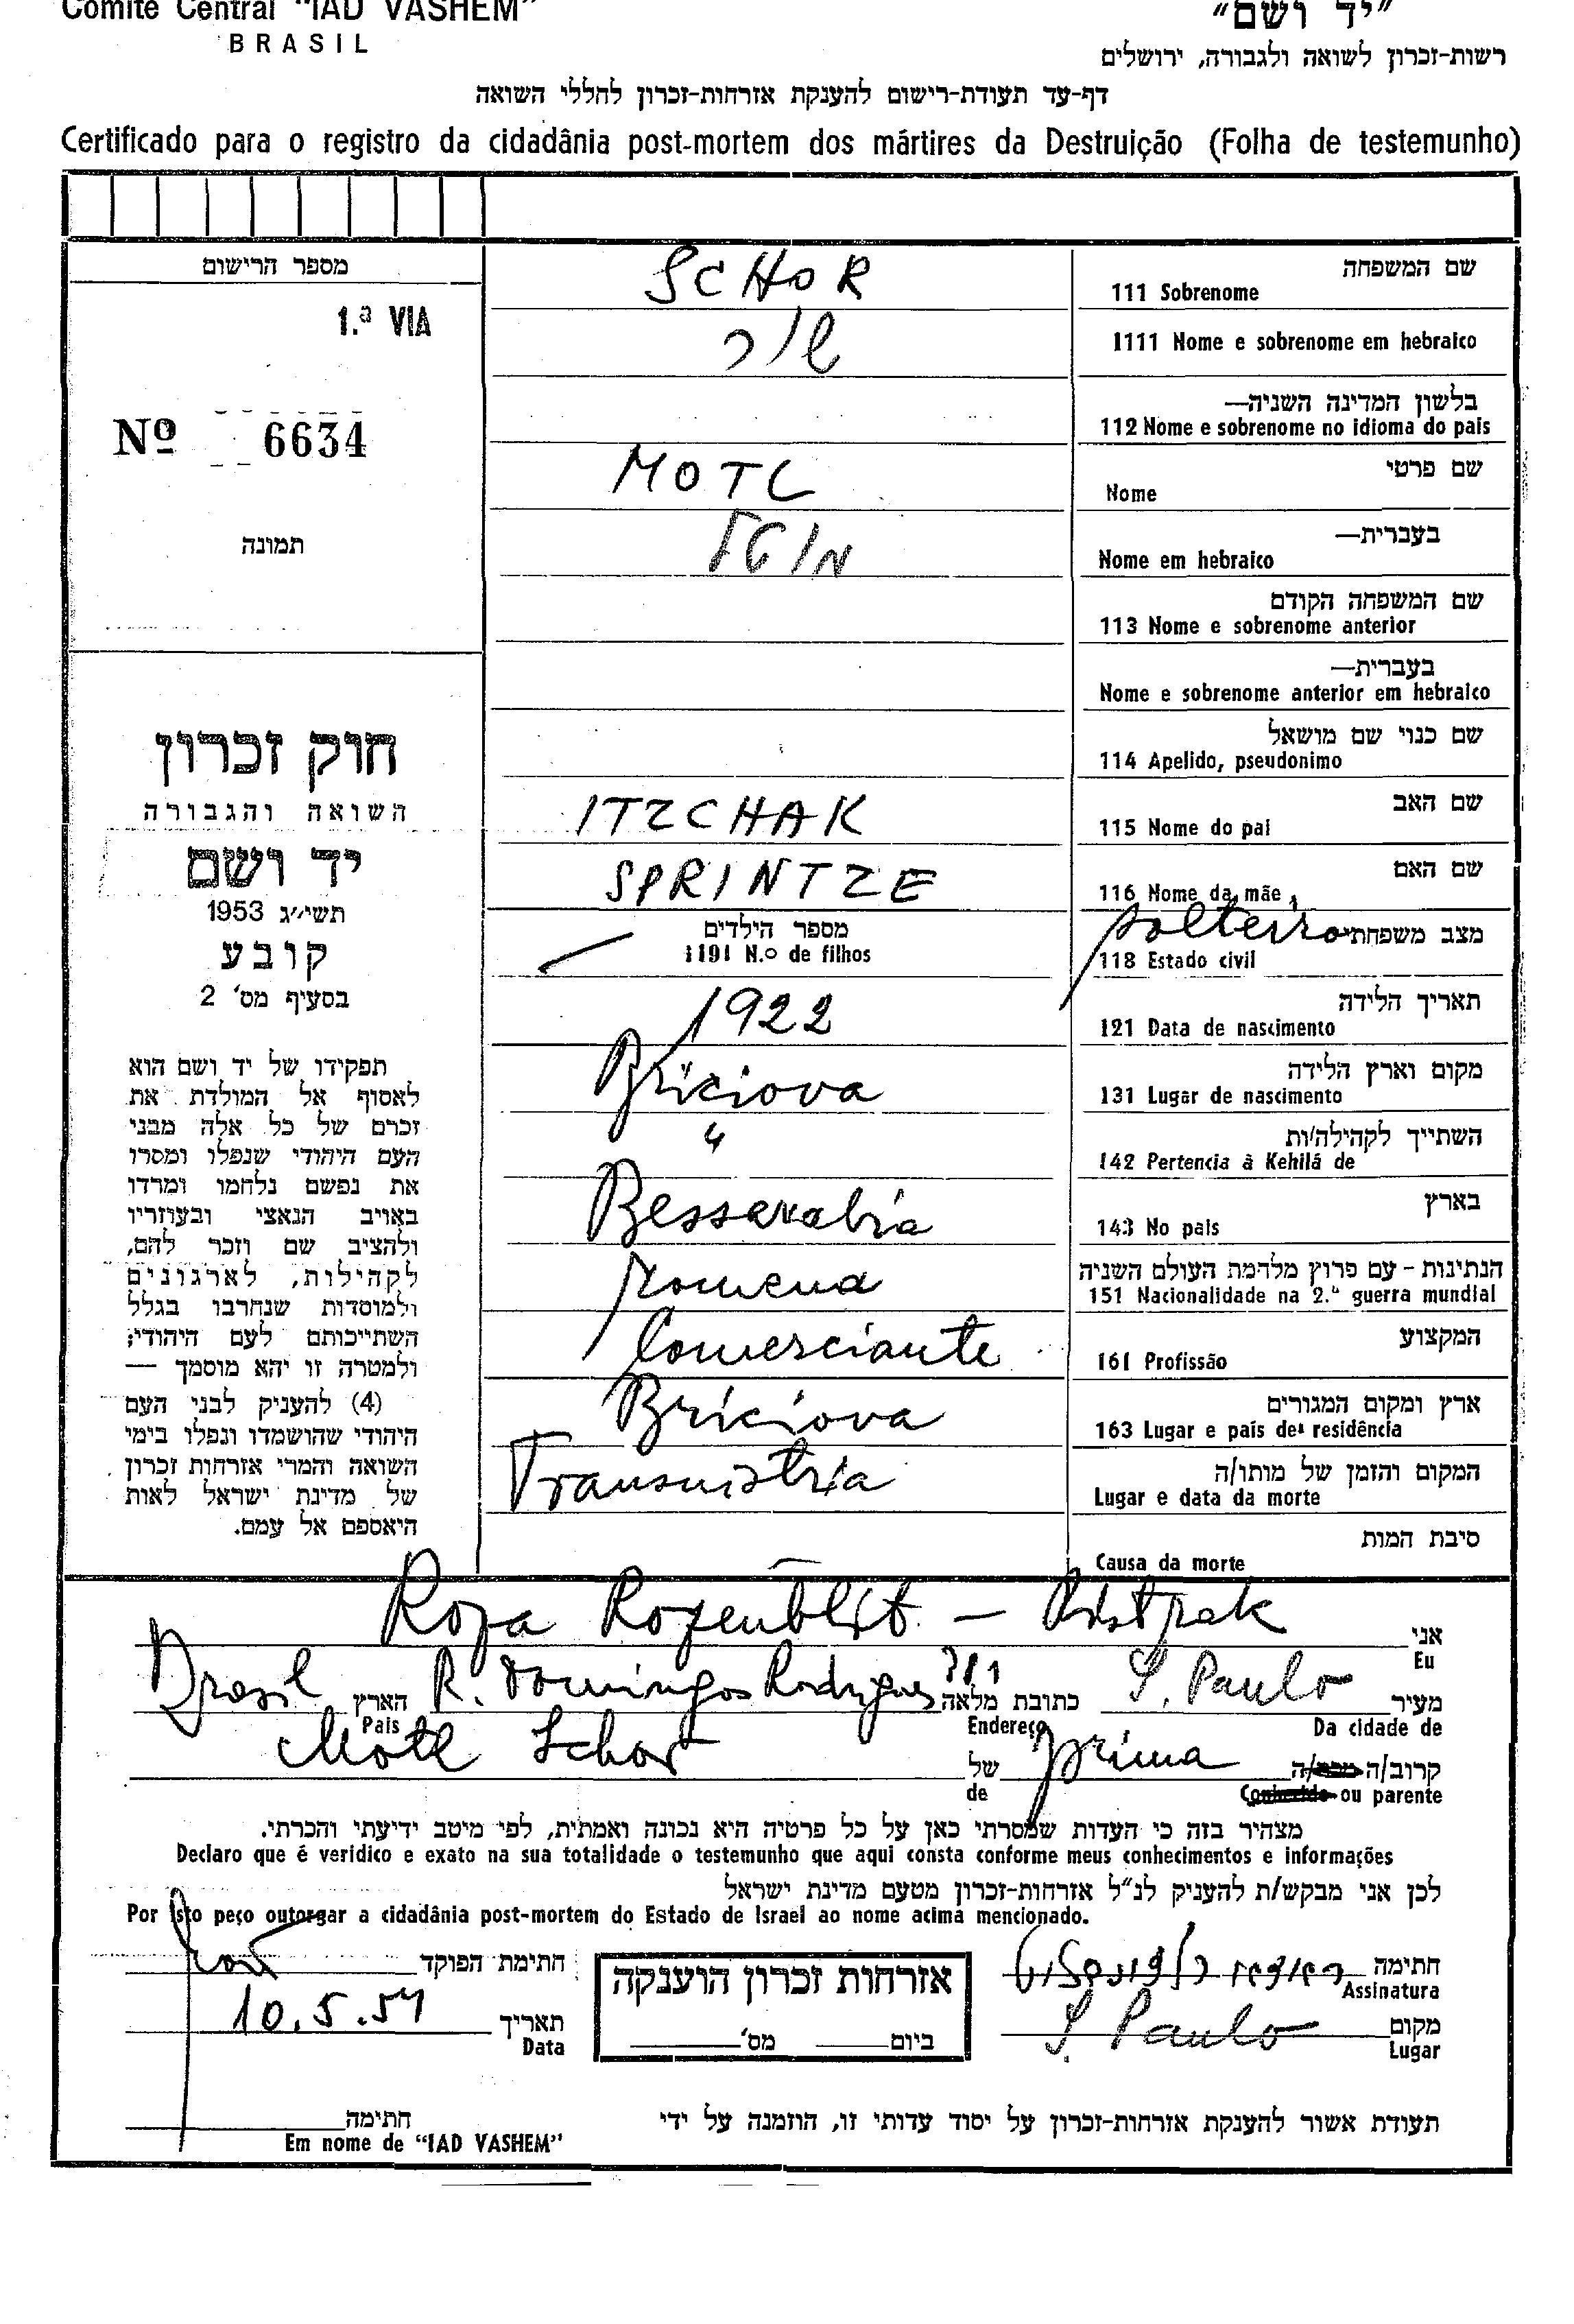 Comite Central "IAD VASHEM"
BRASIL
"יד ושם"
רשות-זכרון לשואה ולגבורה, ירושלים
דף-עד תעודת-רישום להענקת אזרחות-זכרון לחללי השואה
Certificado para o registro da cidadânia post-mortem dos mártires da Destruição (Folha de testemunho)
מספר הרישום
1.ª VIA
Nº 6634
תמונה
חוק זכרון
השואה והגבורה
יד ושם
תשי״ג 1953
קובע
בסעיף מס' 2
תפקידו של יד ושם הוא
לאסוף אל המולדת את
זכרם של כל אלה מבני
העם היהודי שנפלו ומסרו
את נפשם נלחמו ומרדו
באויב הנאצי ובעוזריו
ולהציב שם וזכר להם,
לקהילות, לארגונים
ולמוסדות שנחרבו בגלל
השתייכותם לעם היהודי;
ולמטרה זו יהא מוסמך —
(4) להעניק לבני העם
היהודי שהושמדו ונפלו בימי
השואה והמרי אזרחות זכרון
של מדינת ישראל לאות
היאספם אל עמם.
שם המשפחה
111 Sobrenome
SCHOR
1111 Nome e sobrenome em hebraico
שור
בלשון המדינה השניה—
112 Nome e sobrenome no idioma do pais
שם פרטי
Nome
MOTL
בעברית—
Nome em hebraico
מוטל
שם המשפחה הקודם
113 Nome e sobrenome anterior
בעברית—
Nome e sobrenome anterior em hebraico
שם כנוי שם מושאל
114 Apelido, pseudonimo
שם האב
115 Nome do pai
ITZCHAK
שם האם
116 Nome da mãe
SPRINTZE
מצב משפחתי
118 Estado civil
solteiro
מספר הילדים
1191 N.º de filhos
תאריך הלידה
121 Data de nascimento
1922
מקום וארץ הלידה
131 Lugar de nascimento
Briciova
השתייך לקהילה/ות
142 Pertencia à Kehilá de
"
בארץ
143 No pais
Bessarabia
הנתינות - עם פרוץ מלהמת העולם השניה
151 Nacionalidade na 2.ª guerra mundial
romena
המקצוע
161 Profissão
Comerciante
ארץ ומקום המגורים
163 Lugar e país de residência
Briciova
המקום והזמן של מותו/ה
Lugar e data da morte
Transnistria
סיבת המות
Causa da morte
אני
Eu
Roza Rozenblit - Ristrak
מעיר
Da cidade de
S. Paulo
כתובת מלאה
Endereço
R. Domingos Rodrigues
הארץ
Pais
Brasil
קרוב/ה
ou parente
prima
של
de
Motl Schor
מצהיר בזה כי העדות שמסרתי כאן על כל פרטיה היא נכונה ואמתית, לפי מיטב ידיעתי והכרתי.
Declaro que é veridico e exato na sua totalidade o testemunho que aqui consta conforme meus conhecimentos e informações
לכן אני מבקש/ת להעניק לנ״ל אזרחות-זכרון מטעם מדינת ישראל
Por isto peço outorgar a cidadânia post-mortem do Estado de Israel ao nome acima mencionado.
חתימה
Assinatura
מקום
Lugar
S. Paulo
אזרחות זכרון הוענקה
ביום מס'
חתימת הפוקד
תאריך
Data
10.5.54
תעודת אשור להענקת אזרחות-זכרון על יסוד עדותי זו, הוזמנה על ידי
חתימה
Em nome de "IAD VASHEM"